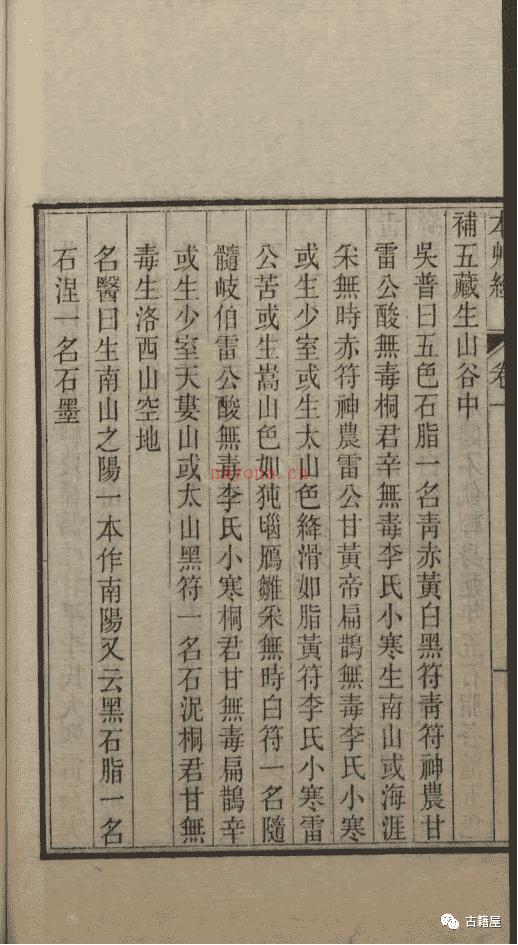 本艸經 卷一 一
補五藏生山谷中
吳普曰五色石脂一名靑赤黃白黑符靑符神農甘
雷公酸無毒桐君辛無毒李氏小寒生南山或海涯
采無時赤符神農雷公甘黃帝扁鵲無毒李氏小寒
或生少室或生太山色絳滑如脂黃符李氏小寒雷
公苦或生嵩山色如㹠𦛁鴈雛采無時白符一名隨
髓岐伯雷公酸無毒李氏小寒桐君甘無毒扁鵲辛
或生少室天婁山或太山黑符一名石泥桐君甘無
毒生洛西山空地
名醫曰生南山之陽一本作南陽又云黑石脂一名
石涅一名石墨
nayona.cn
古籍屋